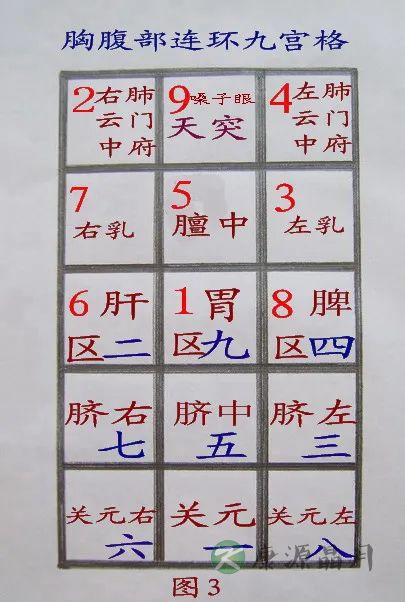 胸腹部连环九宫格
2右肺
云门
中府
9嗓子眼
天突
4左肺
云门
中府
7
右乳
5
膻中
3
左乳
6肝
区二
1胃
区九
8脾
区四
脐右
七
脐中
五
脐左
三
关元右
六
关元
一
关元左
八
图3